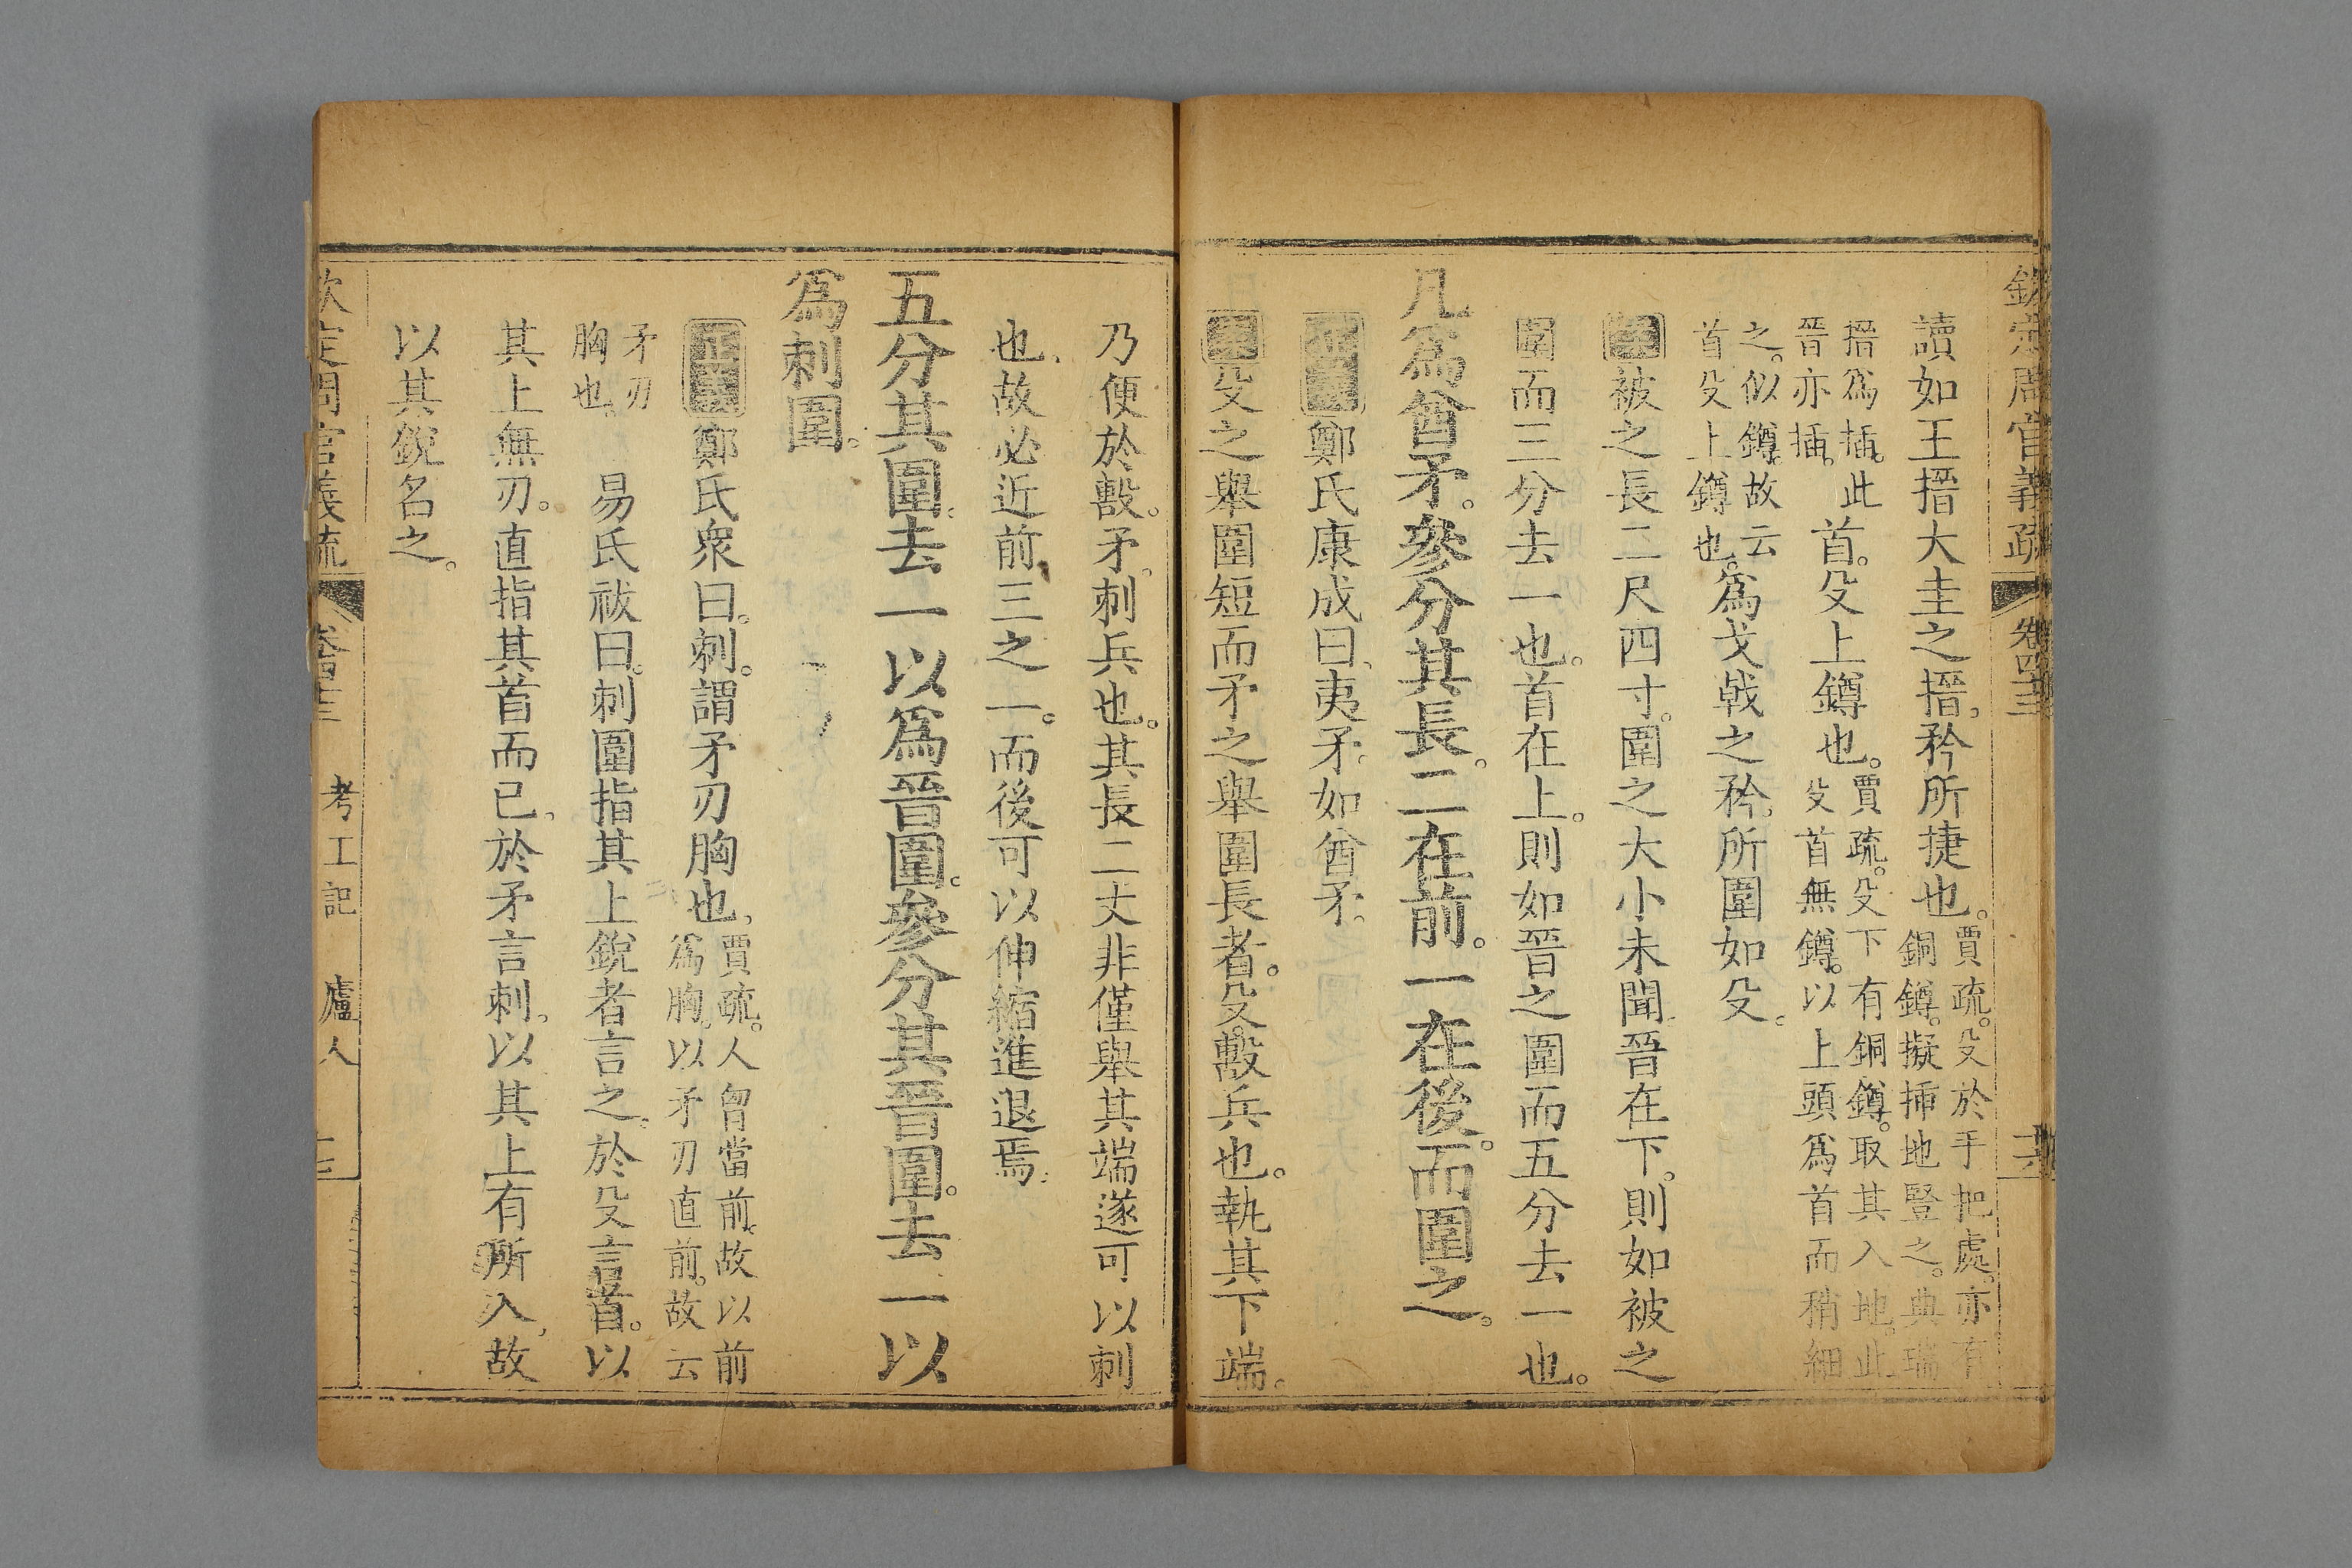 欽定周官義疏 卷四十三
讀如王搢大圭之搢。矜所捷也。賈疏。殳於手把處。亦有銅鐏。擬揷地豎之。典瑞
搢爲揷。此晉亦揷。首。殳上鐏也。賈疏。殳下有銅鐏。取其入地。此殳首無鐏。以上頭爲首而稍細
之。似鐏。故云首殳上鐏也。爲戈戟之矜。所圍如殳。
被之長二尺四寸。圍之大小未聞。晉在下。則如被之
圍而三分去一也。首在上。則如晉之圍而五分去一也。
凡爲酋矛。參分其長。二在前。一在後。而圍之。
鄭氏康成曰。夷矛。如酋矛。
殳之舉圍短而矛之舉圍長者。殳擊兵也。執其下端。
乃便於擊。矛刺兵也。其長二丈非僅舉其端遂可以刺
也。故必近前三之一。而後可以伸縮進退焉。
五分其圍。去一以爲晉圍。參分其晉圍。去一以
爲刺圍。
鄭氏衆曰。刺。謂矛刃胸也。賈疏。人胷當前。故以前爲胸。以矛刃直前。故云
矛刃胸也。 易氏祓曰。刺圍指其上銳者言之。於殳言首。以
其上無刃。直指其首而已。於矛言刺。以其上有所入。故
以其銳名之。
欽定周官義疏 卷四十三 考工記 廬人